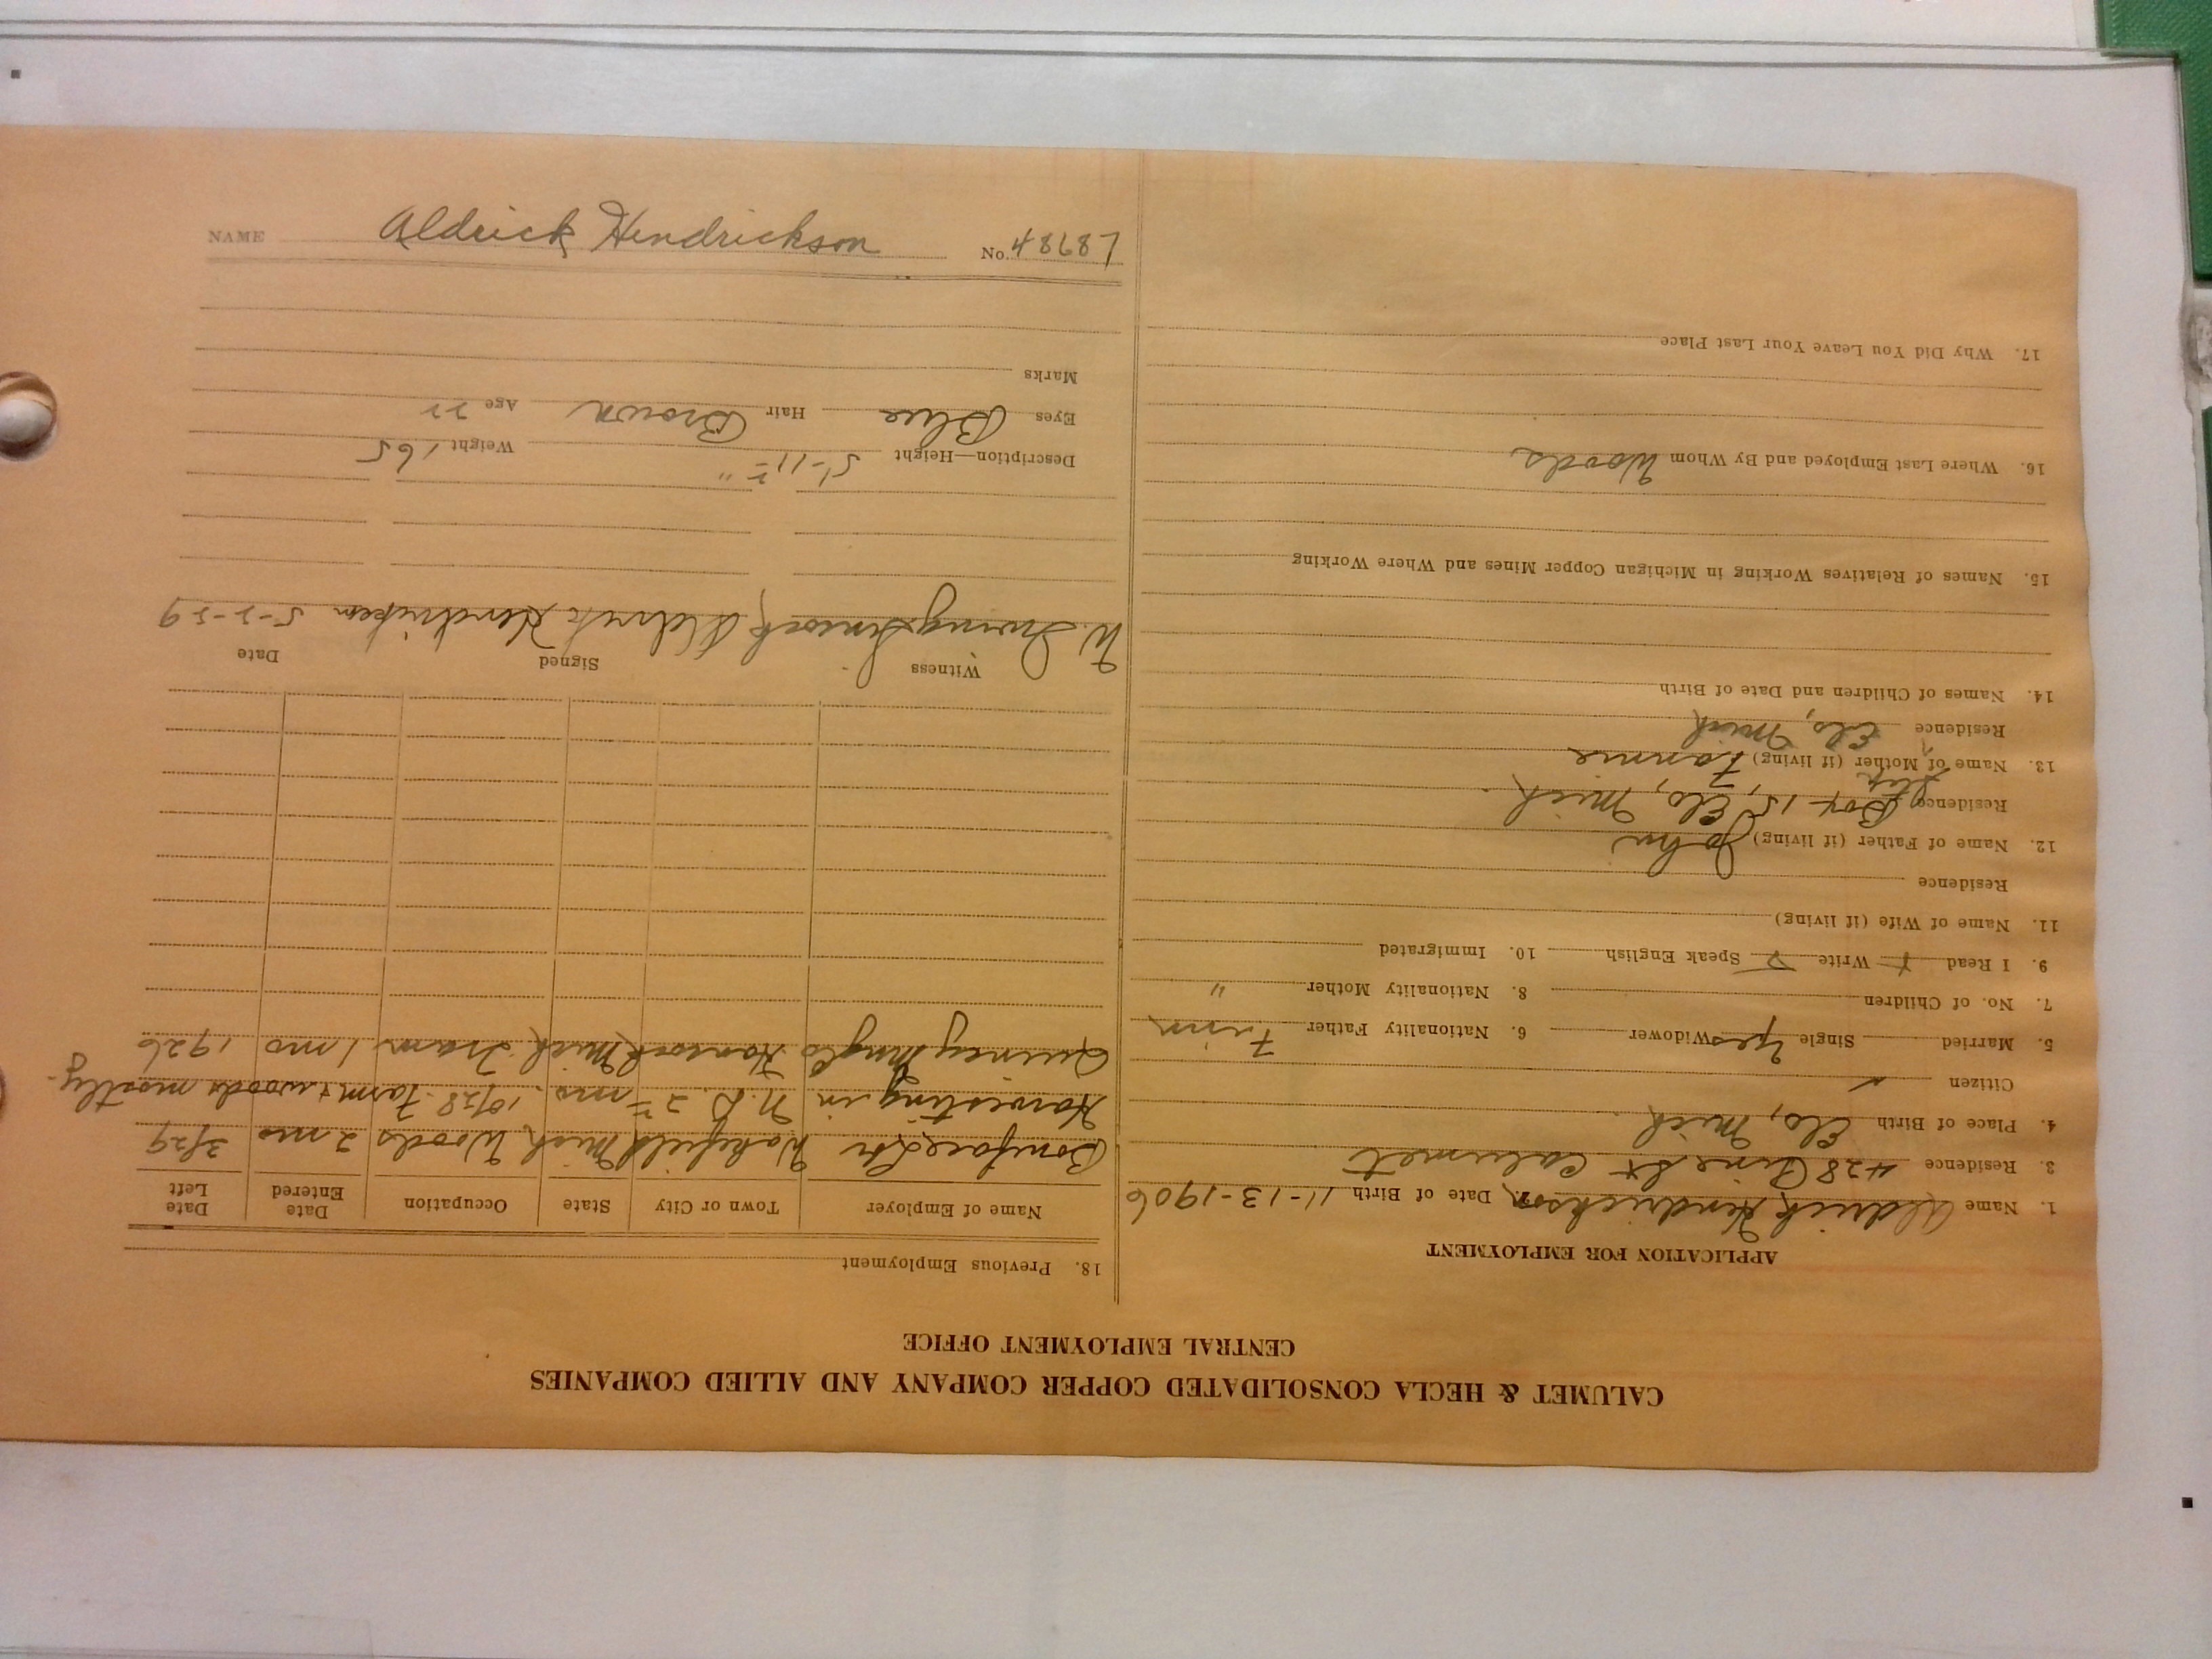 NAME Aldrick Hendrickson No. 48687
CALUMET & HECLA CONSOLIDATED COPPER COMPANY AND ALLIED COMPANIES
CENTRAL EMPLOYMENT OFFICE
APPLICATION FOR EMPLOYMENT
1. Name Aldrick Hendrickson 2. Date of Birth 11-13-1906
3. Residence 428 Pine St Calumet
4. Place of Birth Elo, Mich
Citizen ✓
5. Married Single Yes Widower 6. Nationality Father Finn
7. No. of Children 8. Nationality Mother "
9. I Read Write Speak English 10. Immigrated
11. Name of Wife (if living)
Residence
12. Name of Father (if living) John
Residence Box 15, Elo, Mich.
13. Name of Step Mother (if living) Fannie
Residence Elo, Mich
14. Names of Children and Date of Birth
15. Names of Relatives Working in Michigan Copper Mines and Where Working
16. Where Last Employed and By Whom Woods
17. Why Did You Leave Your Last Place
18. Previous Employment
Name of Employer Town or City State Occupation Date Entered Date Left
Boniface Wakefield Mich Woods 2 mo 3/29
Harvesting in N.D. mo. 1928 Farm + woods mostly.
Quincy Hancock Mich Tram 1 mo 1926
Witness Signed Date
W. Aldrick Hendrickson 5-2-29
Description—Height 5'-11 " Weight 165
Eyes Blue Hair Brown Age 22
Marks